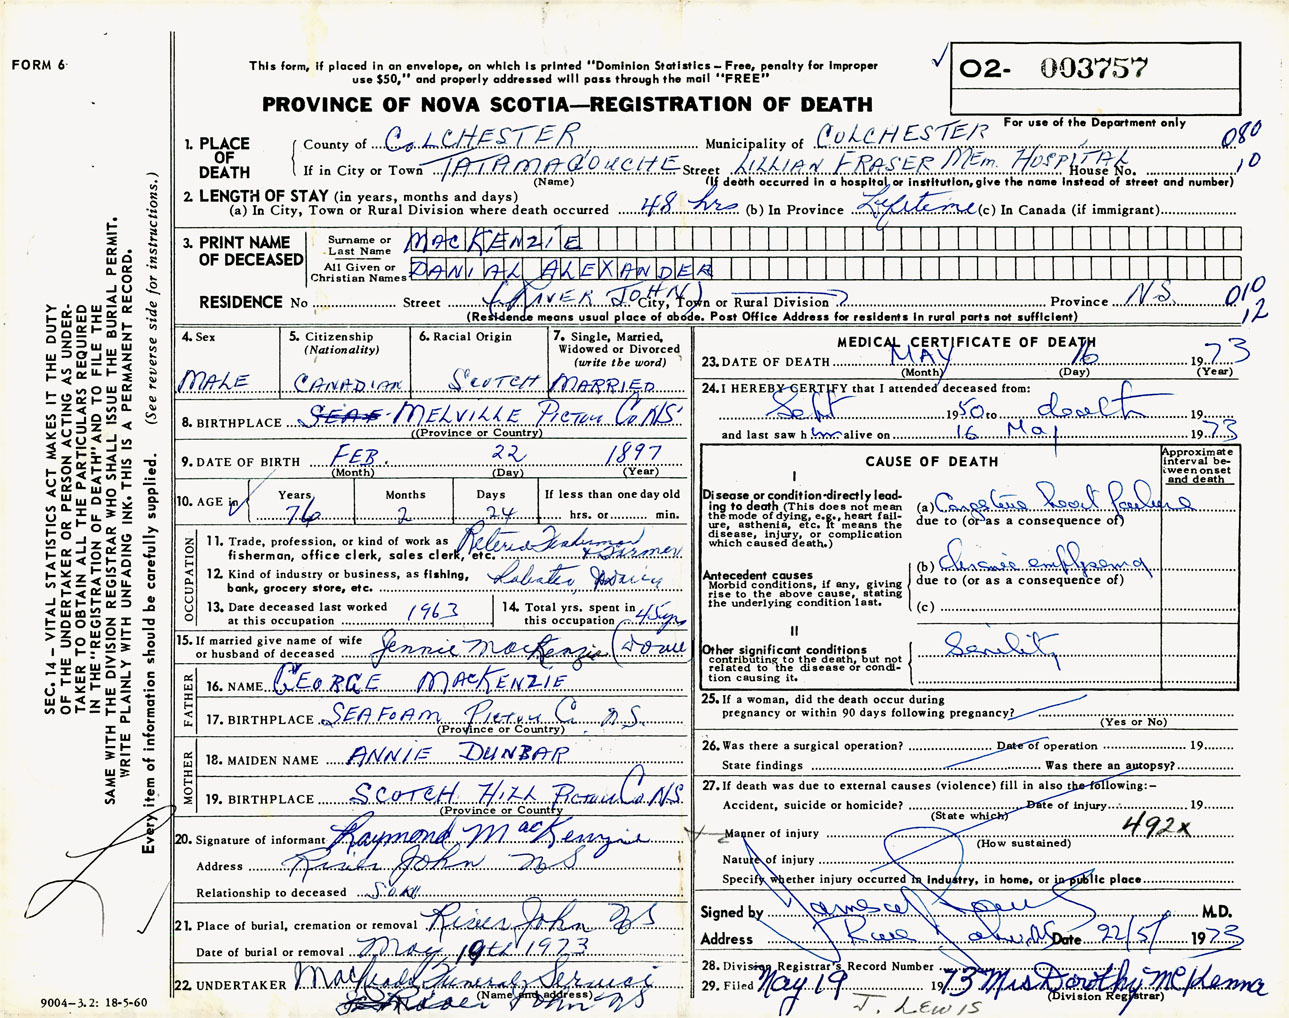 FORM 6
This form, if placed in an envelope, on which is printed "Dominion Statistics – Free, penalty for improper
use $50," and properly addressed will pass through the mail "FREE"
PROVINCE OF NOVA SCOTIA—REGISTRATION OF DEATH
O2- 003757
For use of the Department only
1. PLACE OF DEATH
County of COLCHESTER Municipality of COLCHESTER 080
If in City or Town TATAMAGOUCHE Street LILLIAN FRASER MEM. HOSPITAL House No. 10
(Name) (If death occurred in a hospital or institution, give the name instead of street and number)
2. LENGTH OF STAY (in years, months and days)
(a) In City, Town or Rural Division where death occurred 48 hrs (b) In Province Lifetime (c) In Canada (if immigrant)
3. PRINT NAME OF DECEASED
Surname or Last Name MACKENZIE
All Given or Christian Names DANIAL ALEXANDER
RESIDENCE No Street (RIVER JOHN) City, Town or Rural Division Province N.S. 010
(Residence means usual place of abode. Post Office Address for residents in rural parts not sufficient) 12
4. Sex MALE
5. Citizenship (Nationality) CANADIAN
6. Racial Origin SCOTCH
7. Single, Married, Widowed or Divorced (write the word) MARRIED
8. BIRTHPLACE SEAF MELVILLE Pictou Co. NS
(Province or Country)
9. DATE OF BIRTH FEB. 22 1897
(Month) (Day) (Year)
10. AGE in Years 76 Months 2 Days 24 If less than one day old hrs. or min.
OCCUPATION
11. Trade, profession, or kind of work as fisherman, office clerk, sales clerk, etc. Retired Fisherman & Farmer
12. Kind of industry or business, as fishing, bank, grocery store, etc. Lobster,
13. Date deceased last worked at this occupation 1963
14. Total yrs. spent in this occupation 45 yrs
15. If married give name of wife or husband of deceased Jennie MacKenzie
FATHER
16. NAME GEORGE MACKENZIE
17. BIRTHPLACE SEAFOAM Pictou C. N.S.
(Province or Country)
MOTHER
18. MAIDEN NAME ANNIE DUNBAR
19. BIRTHPLACE SCOTCH HILL Pictou Co. N.S.
(Province or Country)
20. Signature of informant Raymond MacKenzie
Address River John NS
Relationship to deceased Son
21. Place of burial, cremation or removal River John NS
Date of burial or removal May 19th 1973
22. UNDERTAKER Funeral Service
(Name and address) River John NS
MEDICAL CERTIFICATE OF DEATH
23. DATE OF DEATH MAY 16 1973
(Month) (Day) (Year)
24. I HEREBY CERTIFY that I attended deceased from:
Sept 1950 to death 19
and last saw him alive on 16 May 1973
CAUSE OF DEATH
Approximate interval between onset and death
I
Disease or condition directly leading to death (This does not mean the mode of dying, e.g., heart failure, asthenia, etc. It means the disease, injury, or complication which caused death.)
(a) Congestive heart failure
due to (or as a consequence of)
Antecedent causes
Morbid conditions, if any, giving rise to the above cause, stating the underlying condition last.
(b) chronic emphysema
due to (or as a consequence of)
(c)
II
Other significant conditions contributing to the death, but not related to the disease or condition causing it.
Senility
25. If a woman, did the death occur during
pregnancy or within 90 days following pregnancy?
(Yes or No)
26. Was there a surgical operation? Date of operation 19
State findings Was there an autopsy?
27. If death was due to external causes (violence) fill in also the following:–
Accident, suicide or homicide? Date of injury 19
(State which) 492x
Manner of injury
(How sustained)
Nature of injury
Specify whether injury occurred in industry, in home, or in public place
Signed by M.D.
Address River John, NS Date 22/5/ 1973
28. Division Registrar's Record Number
29. Filed May 19 1973 Mrs Dorothy McKenna
(Division Registrar)
J. LEWIS
SEC. 14 – VITAL STATISTICS ACT MAKES IT THE DUTY
OF THE UNDERTAKER OR PERSON ACTING AS UNDER-
TAKER TO OBTAIN ALL THE PARTICULARS REQUIRED
IN THE "REGISTRATION OF DEATH" AND TO FILE THE
SAME WITH THE DIVISION REGISTRAR WHO SHALL ISSUE THE BURIAL PERMIT.
WRITE PLAINLY WITH UNFADING INK. THIS IS A PERMANENT RECORD.
Every item of information should be carefully supplied. (See reverse side for instructions.)
9004-3.2: 18-5-60